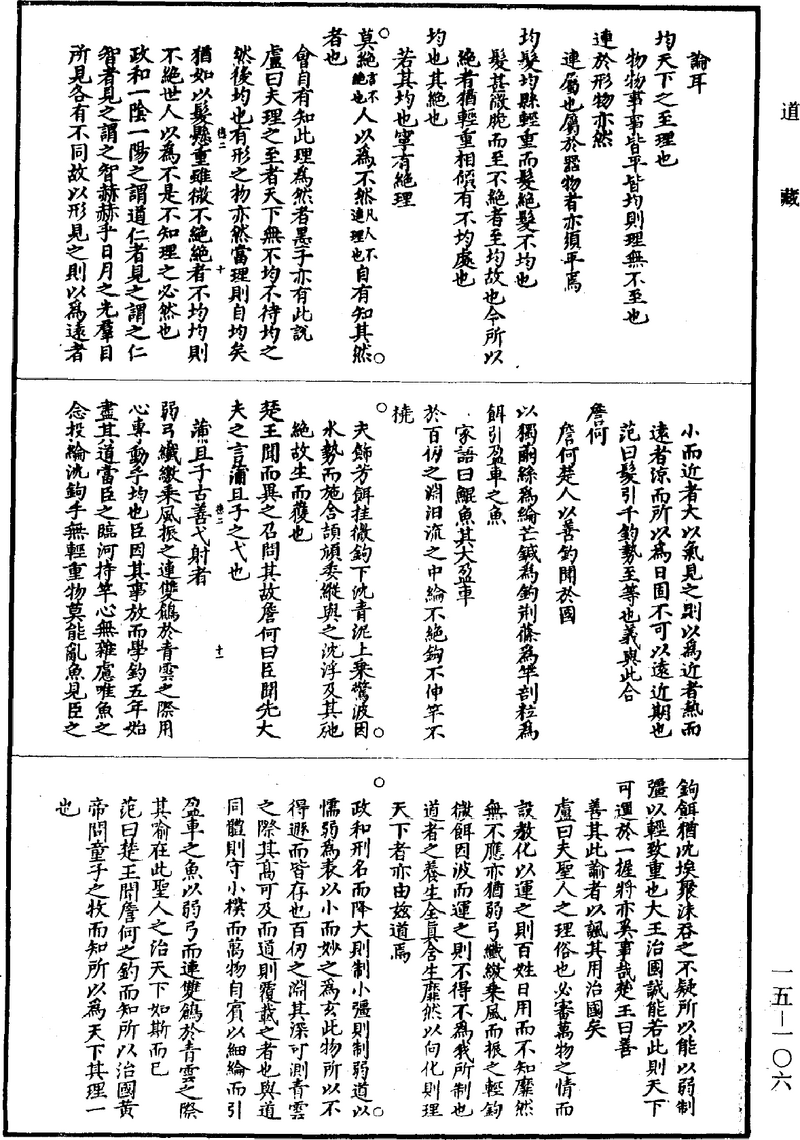 道藏
論耳
均天下之至理也
物物事事皆平皆均則理無不至也
連於形物亦然
連屬也屬於器物者亦須平焉
均髮均縣輕重而髮絕髮不均也
髮甚微脆而至不絕者至均故也今所以
絕者猶輕重相傾有不均處也
均也其絕也
若其均也寧有絕理
莫絕言不絕也人以為不然凡人不達理也自有知其然
者也
會自有知此理為然者墨子亦有此說
盧曰夫理之至者天下無不均不待均之
然後均也有形之物亦然當理則自均矣
猶如以髮懸重雖微不絕絕者不均均則
不絕世人以為不是不知理之必然也
政和一陰一陽之謂道仁者見之謂之仁
智者見之謂之智赫赫乎日月之光羣目
所見各有不同故以形見之則以為遠者
小而近者大以氣見之則以為近者熱而
遠者涼而所以為日固不可以遠近期也
范曰髮引千鈞勢至等也義與此合
詹何
詹何楚人以善釣聞於國
以獨繭絲為綸芒鍼為鉤荊篠為竿剖粒為
餌引盈車之魚
家語曰鯤魚其大盈車
於百仞之淵汩流之中綸不絕鉤不伸竿不
橈
夫飾芳餌挂微鉤下沈青泥上乘驚波因
水勢而施舍頡頏委縱與之沈浮及其弛
絕故生而獲也
楚王聞而異之召問其故詹何曰臣聞先大
夫之言蒲且子之弋也
蒲且子古善弋射者
弱弓纖繳乘風振之連雙鶬於青雲之際用
心專動手均也臣因其事放而學釣五年始
盡其道當臣之臨河持竿心無雜慮唯魚之
念投綸沈鉤手無輕重物莫能亂魚見臣之
鉤餌猶沈埃聚沫吞之不疑所以能以弱制
彊以輕致重也大王治國誠能若此則天下
可運於一握將亦奚事哉楚王曰善
善其此諭者以諷其用治國矣
盧曰夫聖人之理俗也必審萬物之情而
設教化以運之則百姓日用而不知靡然
無不應亦猶弱弓纖繳乘風而振之輕鉤
微餌因波而運之則不得不為我所制也
道者之養生全真含生靡然以向化則理
天下者亦由茲道焉
政和刑名而降大則制小彊則制弱道以
懦弱為表以小而妙之為玄此物所以不
得遯而皆存也百仞之淵其深可測青雲
之際其高可及而道則覆載之者也與道
同體則守小樸而萬物自賓以細綸而引
盈車之魚以弱弓而連雙鶬於青雲之際
其喻在此聖人之治天下如斯而已
范曰楚王聞詹何之釣而知所以治國黃
帝問童子之牧而知所以為天下其理一
也
一五—一〇六